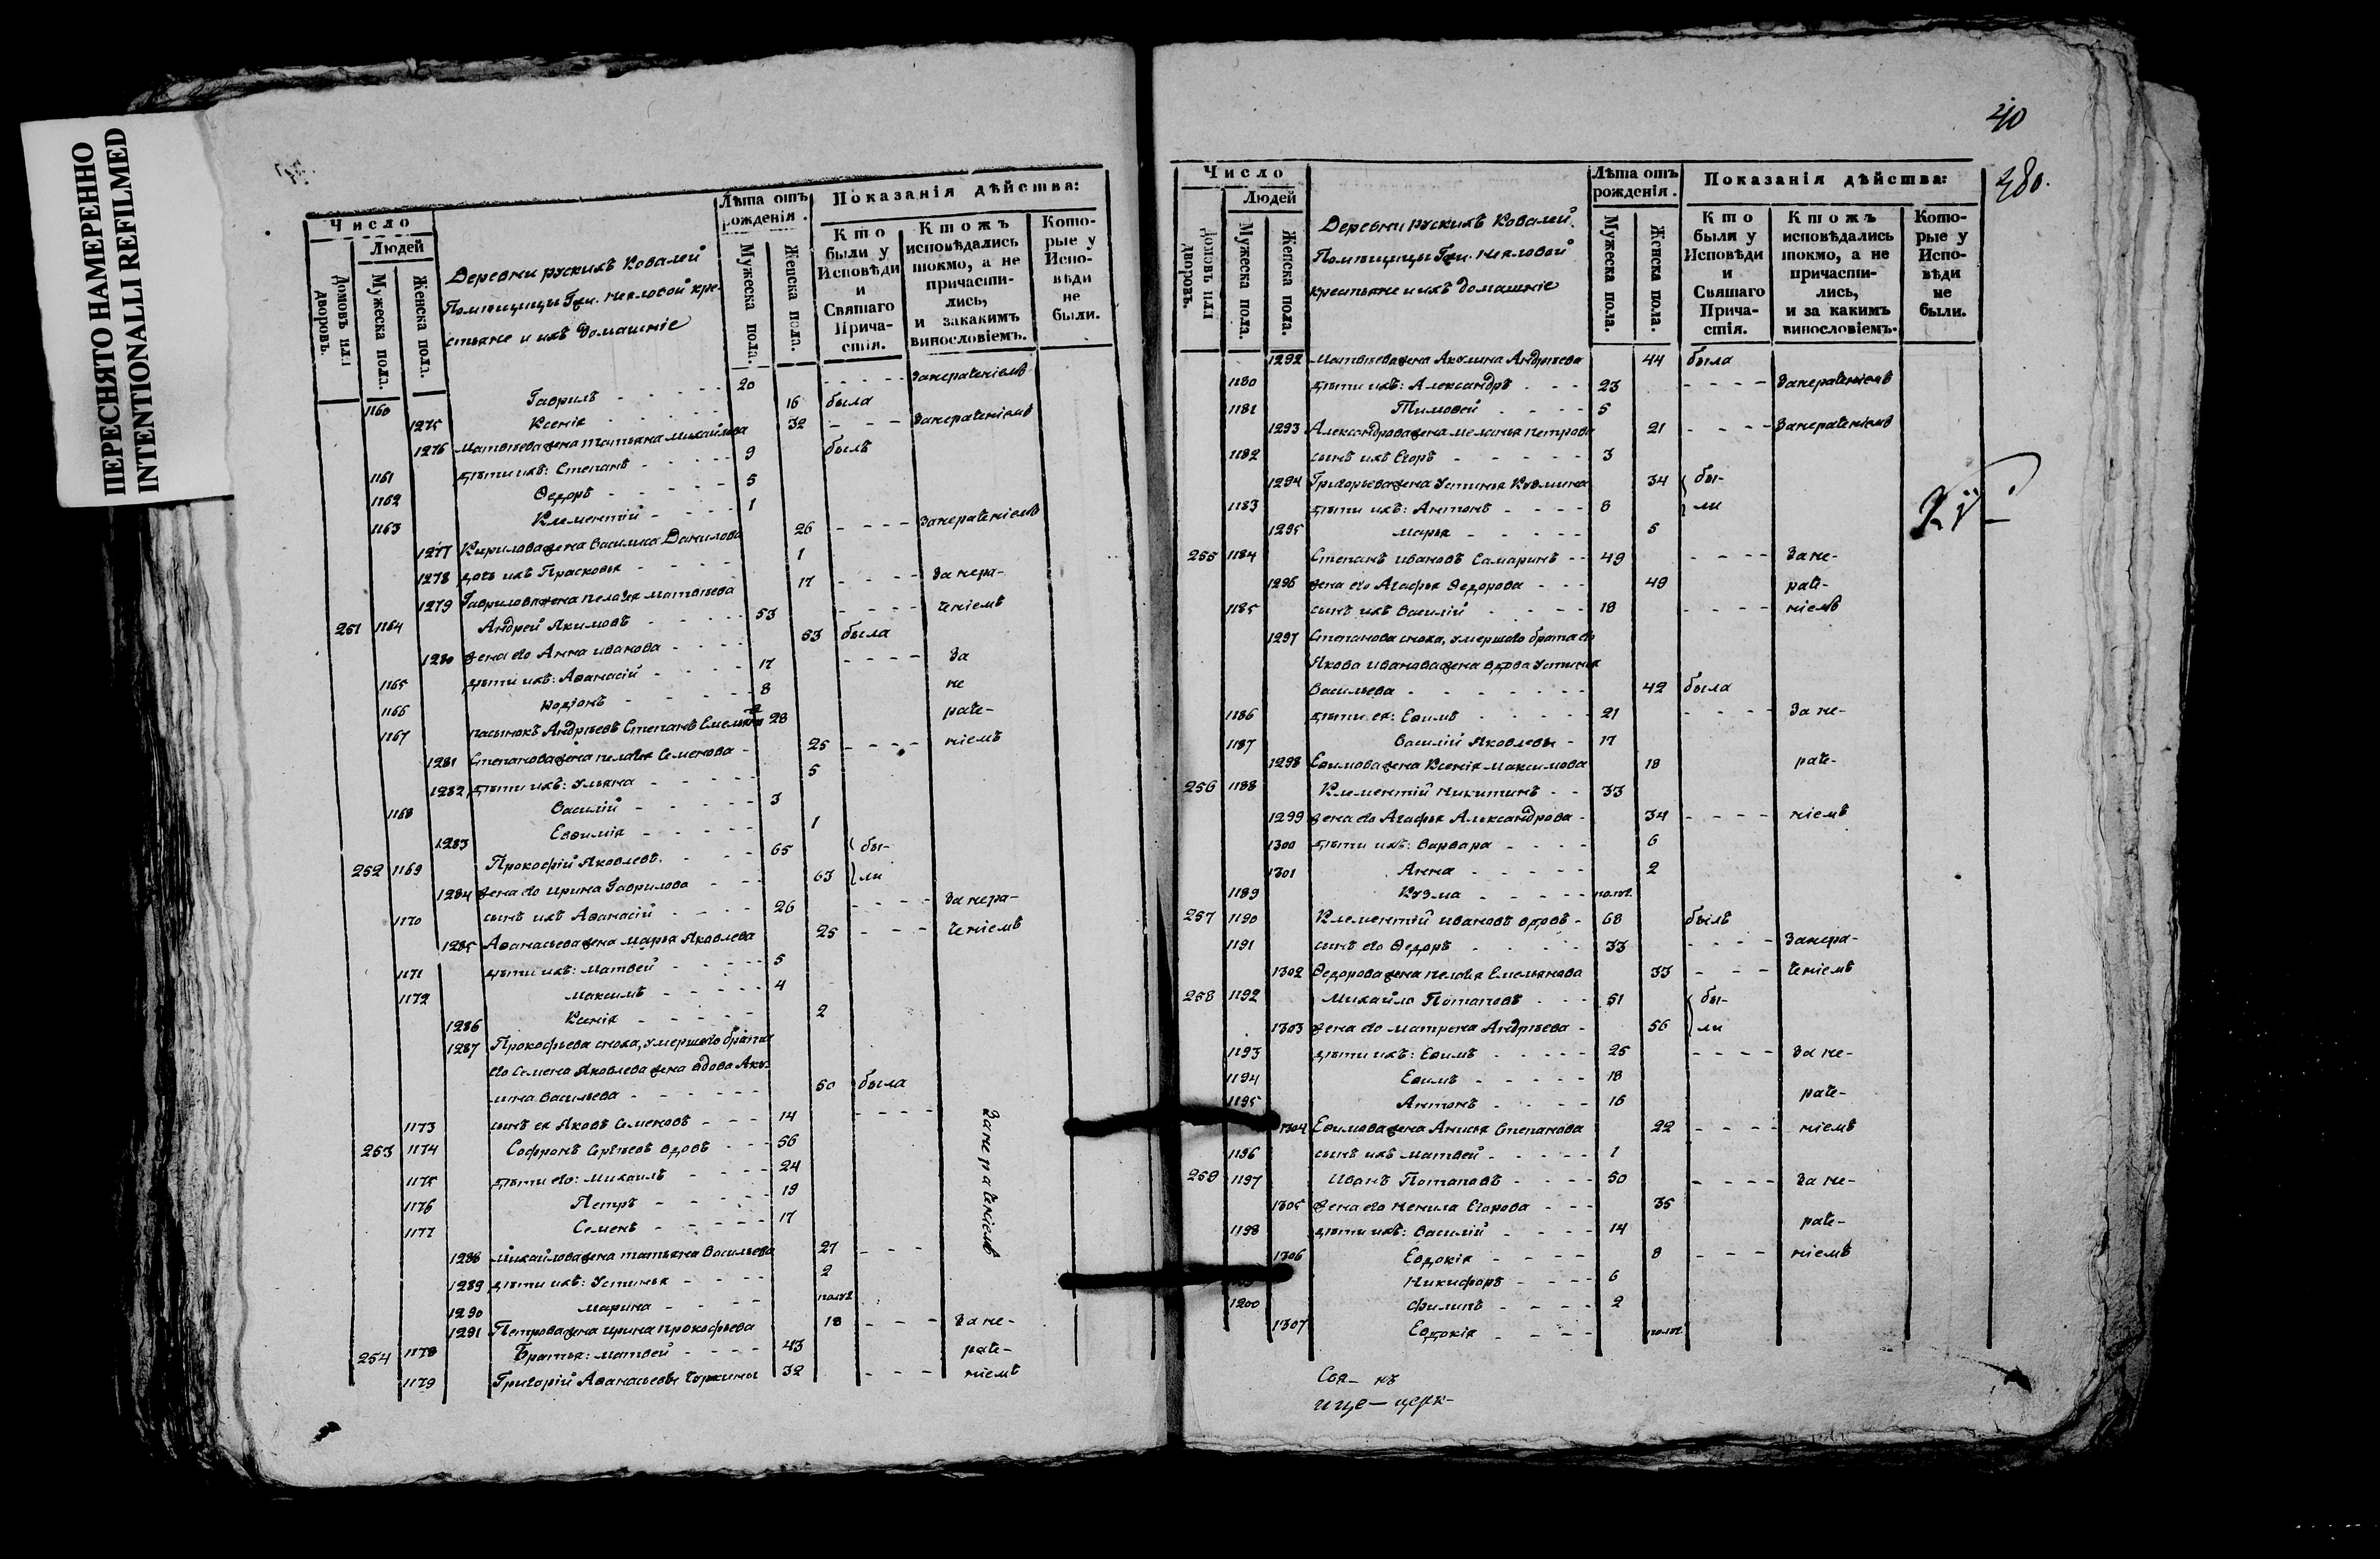 ПЕРЕСНЯТО НАМЕРЕННО
INTENTIONALLI REFILMED
Число
Людей
Домовъ или дворовъ.
Мужеска пола.
Женска пола.
Деревни рускихъ Ковалей
Помѣщицы Гжи. Нееловой кре-
стьяне и ихъ домашніе
Лѣта отъ рожденія.
Мужеска пола.
Женска пола.
Показанія дѣйства:
Кто были у Исповѣди и Святаго Причастія.
Ктожъ исповѣдались токмо, а не причастились, и закакимъ винословіемъ.
Которые у Исповѣди не были.
1160 Гаврилъ 20 - - - - Занераченіемъ
1275 Ксенія 16 была
1276 Матвѣева жена Татьяна Михайлова 32 - - - Занераченіемъ
1161 дѣти ихъ: Степанъ 9 былъ
1162 Ѳедоръ 5
1163 Климентій 1
1277 Кирилова жена Василиса Данилова 26 - - - - Занераченіемъ
1278 дочь ихъ Прасковья 1
1279 Гаврилова жена Пелагея Матвѣева 17 - - - - За нера-
251 1164 Андрей Якимовъ 53 - - - - ченіемъ
1280 жена его Анна Иванова 53 была
1165 дѣти ихъ: Аѳанасій 17 - - - - За
1166 Родіонъ 8 не
1167 пасынокъ Андрѣевъ Степанъ Емельяновъ 28 раче-
1281 Степанова жена Пелагея Семенова 25 - - - - ніемъ
1282 дѣти ихъ: Ульяна 5
1168 Василій 3
1283 Евѳимія 1
252 1169 Прокофій Яковлевъ 65 бы-
1284 жена его Ирина Гаврилова 63 ли
1170 сынъ ихъ Аѳанасій 26 - - - - За нера-
1285 Аѳанасьева жена Марья Яковлева 25 - - - ченіемъ
1171 дѣти ихъ: Матвей 5
1172 Максимъ 4
1286 Ксенія 2
1287 Прокофьева сноха, умершаго брата
его Семена Яковлева жена вдова Аку-
лина Васильева 50 была
1173 сынъ ея Яковъ Семеновъ 14 - - - -
253 1174 Софронъ Сергѣевъ вдовъ 56
1175 дѣти его: Михаилъ 24
1176 Петръ 19
1177 Семенъ 17
Занераченіемъ
1288 Михайлова жена Татьяна Васильева 27 - - -
1289 дѣти ихъ: Устинья 2
1290 Марина полг.
1291 Петрова жена Ирина Прокофьева 18 - - - За не-
254 1178 Братья: Матвей 43 раче-
1179 Григорій Аѳанасьевы Горкины 32 - - - ніемъ
40
380.
Число
Людей
Домовъ или дворовъ.
Мужеска пола.
Женска пола.
Деревни рускихъ Ковалей
Помѣщицы Гжи. Нееловой
крестьяне и ихъ домашніе
Лѣта отъ рожденія.
Мужеска пола.
Женска пола.
Показанія дѣйства:
Кто были у Исповѣди и Святаго Причастія.
Ктожъ исповѣдались токмо, а не причастились, и за какимъ винословіемъ.
Которые у Исповѣди не были.
1292 Матвѣева жена Акулина Андрѣева 44 была
1180 дѣти ихъ: Александръ 23 - - - - Занераченіемъ
1181 Тимовей 5
1293 Александрова жена Меланья Петрова 21 - - - - Занераченіемъ
1182 сынъ ихъ Егоръ 3
1294 Григорьева жена Устинья Кузмина 34 бы-
1183 дѣти ихъ: Антонъ 8 ли
1295 Марья 5
255 1184 Степанъ Ивановъ Самаринъ 49 - - - - За не-
1296 жена его Агафья Ѳедорова 49 раче-
1185 сынъ ихъ Василій 18 - - - - ніемъ
1297 Степанова сноха, умершаго брата его
Якова Иванова жена вдова Устинья
Васильева 42 была
1186 дѣти ея: Ефимъ 21 - - - - За не-
1187 Василій Яковлевы 17
1298 Ефимова жена Ксенія Максимова 18 раче-
256 1188 Климентій Никитинъ 33
1299 жена его Агафья Александрова 34 - - - - ніемъ
1300 дѣти ихъ: Варвара 6
1301 Анна 2
1189 Кузма полг.
257 1190 Климентій Ивановъ вдовъ 68 былъ
1191 сынъ его Ѳедоръ 33 - - - - Занера-
1302 Ѳедорова жена Пелагея Емельянова 33 - - - ченіемъ
258 1192 Михайло Потаповъ 51 бы-
1303 жена его Матрена Андрѣева 56 ли
1193 дѣти ихъ: Ефимъ 25 - - - - За не-
1194 Ефимъ 18
1195 Антонъ 16 раче-
1304 Ефимова жена Анисья Степанова 22 - - - - ніемъ
1196 сынъ ихъ Матвей 1
259 1197 Иванъ Потаповъ 50 - - - - За не-
1305 жена его Ненила Егорова 35
1198 дѣти ихъ: Василій 14 раче-
1306 Евдокія 8 - - - ніемъ
Никифоръ 6
1200 Филипъ 2
1307 Евдокія полг.